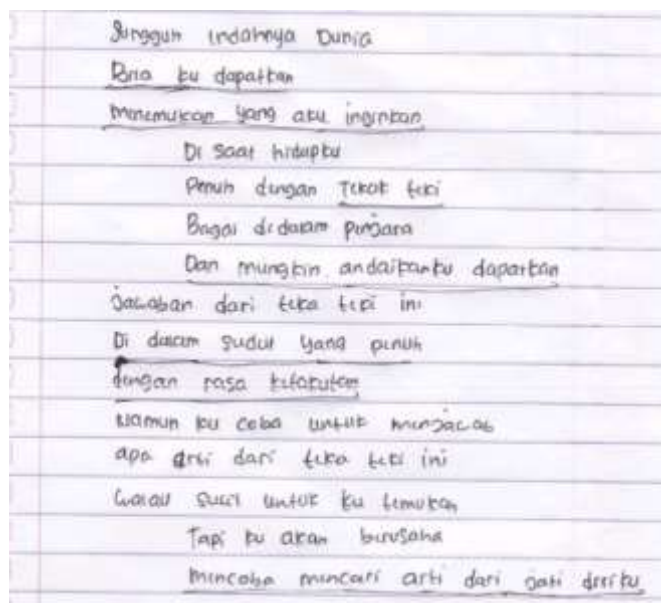 Sungguh indahnya Dunia
Bila ku dapatkan
menemukan yang aku inginkan
Di saat hidupku
Penuh dengan Tekak teki
Bagai di dalam penjara
Dan mungkin andaikanku dapatkan
Jawaban dari teka teki ini
Di dalam sudut yang penuh
dengan rasa ketakutan
Namun ku coba untuk menjawab
apa arti dari teka teki ini
Walau sulit untuk ku temukan
Tapi ku akan berusaha
mencoba mencari arti dari jati diriku